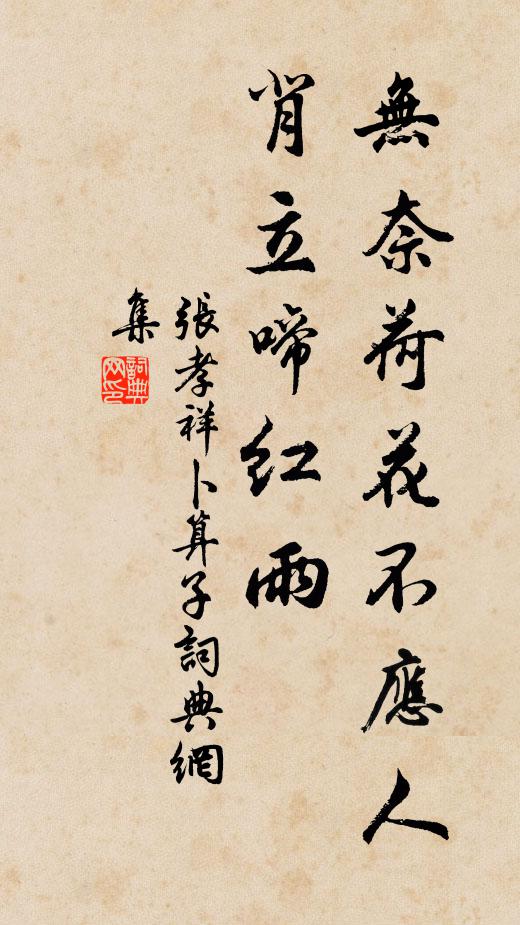 無奈荷花不應人
背立啼紅雨
張孝祥卜算子詞典網
集
詞典
网印